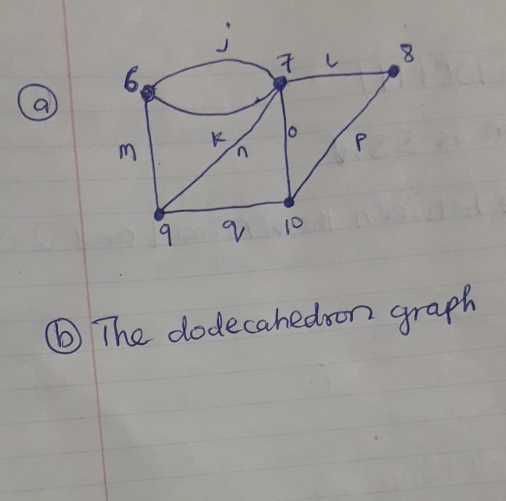 j
6 7 l 8
a
m k n o p
9 q 10
b The dodecahedron graph